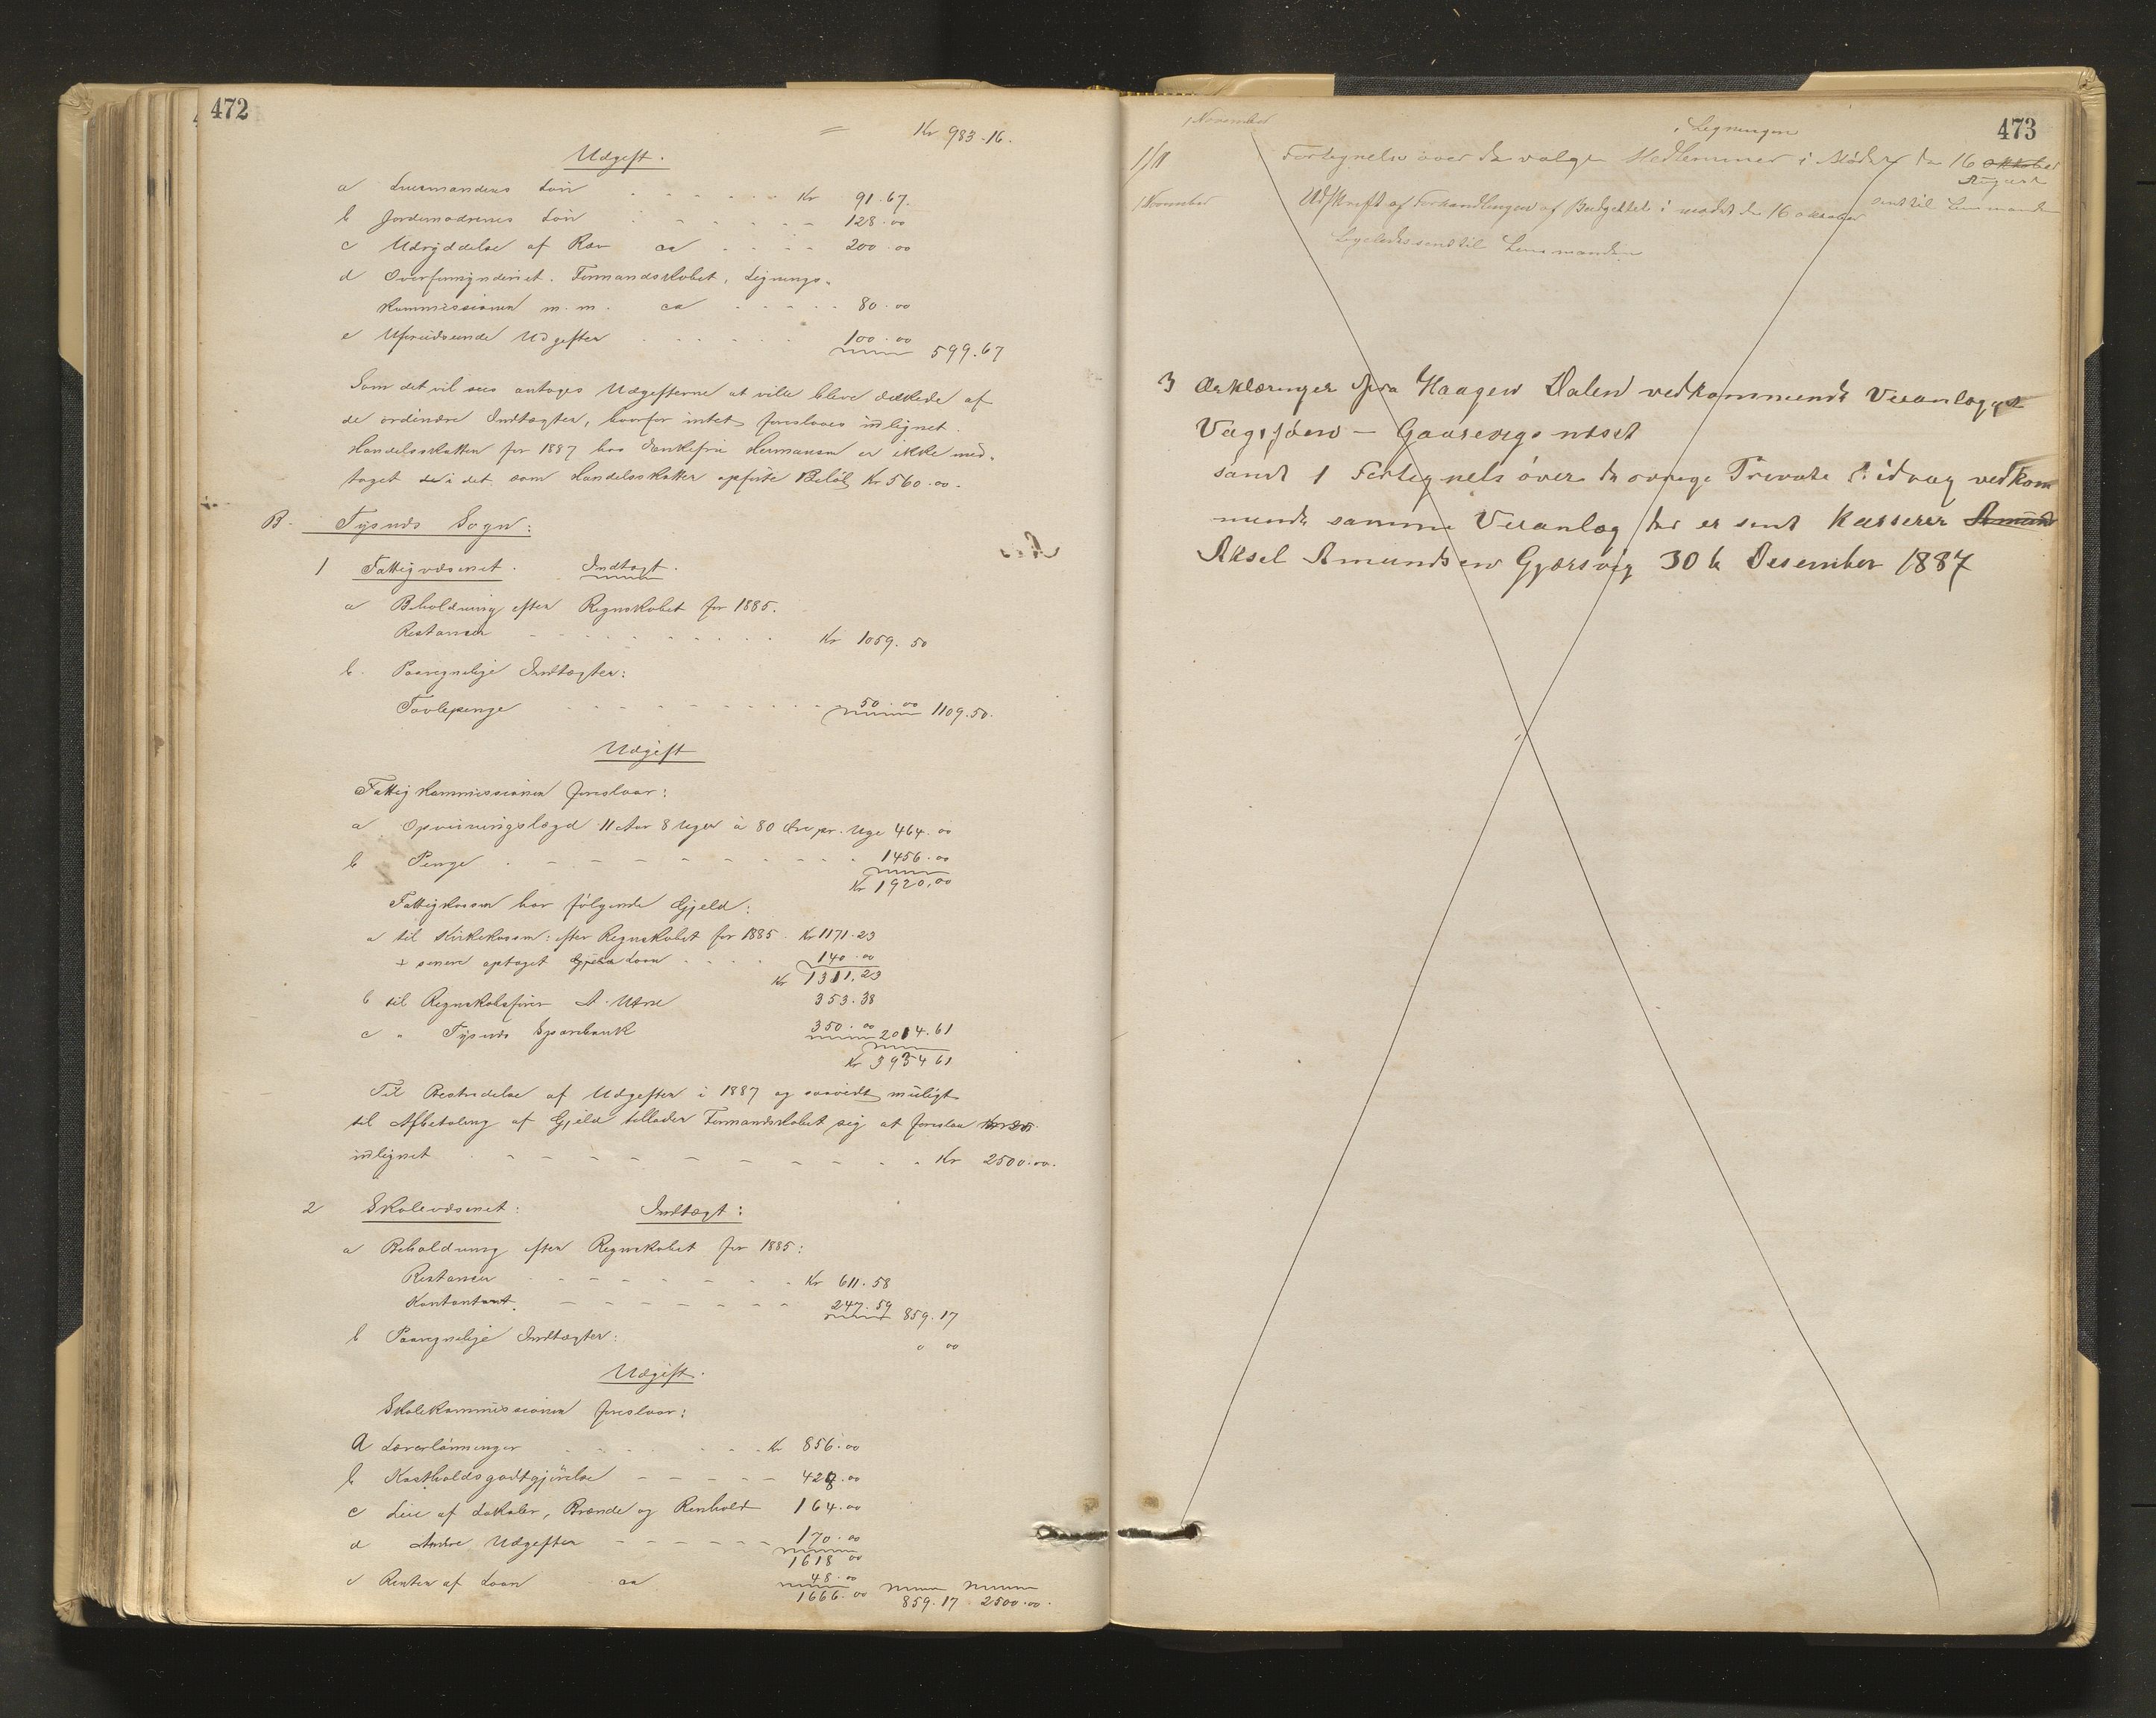 472
= Kr 983-16.
Udgift.
a Lensmandens Løn - - - - - - Kr 91.67.
b Jordemødrenes Løn - - - - - 128.00
c Udryddelse af Rov ca - - - - 200.00
d Overformynderiet. Formandskabet, Lignings-
kommissionen m.m. ca - - - - - 80.00
e Uforudseende Udgifter - - - - - 100.00 599.67
Som det vil sees antages Udgifterne at ville blive dækkede af
de ordinære Indtægter, hvorfor intet foreslaaes udlignet.
Handelsskatten for 1887 hos Enkefru Hermansen er ikke med-
taget i det som Handelsskatter opførte Beløb Kr 560.00.
B. Tysnæs Sogn:
1 Fattigvæsenet. Indtægt.
a Beholdning efter Regnskabet for 1885.
Restancer - - - - - - - - Kr 1059.50
b. Paaregnelige Indtægter:
Tavlepenge - - - - - - - - - 50.00 1109.50.
Udgift
Fattigkommissionen foreslaar:
a Opvisningslægd 11 Aar 8 Uger à 80 Øre pr. Uge 464.00
b Penge - - - - - - - - 1456.00
Kr 1920,00
Fattigkassen har følgende Gjeld:
a til Kirkekassen: efter Regnskabet for 1885 Kr 1171.23
+ senere optaget Laan - - - - 140.00
Kr 1311.23
b til Regnskabsfører A. 353.38
c " Tysnæs Sparebank 350.00 2014.61
Kr 3934 61
Til Bestridelse af Udgifter i 1887 og saavidt muligt
til Afbetaling af Gjeld tillader Formandskabet sig at foreslaa
udlignet - - - - - - - - - - Kr 2500.00.
2 Skolevæsenet: Indtægt:
a Beholdning efter Regnskabet for 1885:
Restancer - - - - - - - Kr 611.58
Kontant - - - - - - - 247.59 859.17
b Paaregnelige Indtægter: 0 00
Udgift.
Skolekommissionen foreslaar:
a Lærerlønninger - - - - - Kr 856.00
b Kostholdsgodtgjørelse - - - - - 428.00
c Leie af Lokaler, Brænde og Renhold 164.00
d Andre Udgifter - - - - - - 170.00
1618 00
e Renter af Laan ca 48.00
1666.00 859.17 2500.00.
473
1 November i Ligningen
1/11 Fortegnelse over de valgte Medlemmer i Mødet den 16 Oktober
August
sent til Lensmanden
1 November Udskrift af Forhandlingen af Budgettet i mødet den 16 oktober
Ligeledes sent til Lensmanden
3 Erklæringer fra Haagen Dalen vedkommende Veianlægget
Vagsjøen - Gaasevigs
samt 1 Fortegnels över de øvrige Private Bidrag vedkom
mende samme Veianlæg der er sent Kasserer Amund
Aksel Amundsen Gjærsvig 30 te Desember 1887